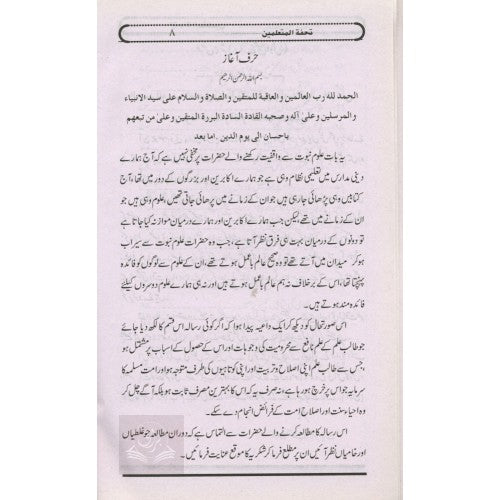 تحفة المتعلمین ۸
حرف آغاز
بسم اللہ الرحمن الرحیم
الحمد لله رب العالمین و العاقبة للمتقین و الصلاة و السلام علی سید الانبیاء
و المرسلین و علی آله و صحبه القادة السادة البررة المتقین و علی من تبعهم
باحسان الی یوم الدین۔ اما بعد
یہ بات علوم نبوت سے واقفیت رکھنے والے حضرات پر مخفی نہیں ہے کہ آج ہمارے
دینی مدارس میں تعلیمی نظام وہی ہے جو ہمارے اکابرین اور بزرگوں کے دور میں تھا، آج
کتابیں وہی پڑھائی جا رہی ہیں جو ان کے زمانے میں پڑھائی جاتی تھیں، علوم وہی ہیں جو ان
کے زمانے میں تھے لیکن جب ہمارے اکابرین اور ہمارے درمیان موازنہ کیا جاتا ہے
تو دونوں کے درمیان بہت ہی فرق نظر آتا ہے، جب وہ حضرات علوم نبوت سے سیراب
ہو کر میدان میں آتے تھے تو وہ صحیح عالم باعمل ہوتے تھے، ان کے علوم سے لوگوں کو فائدہ
پہنچتا تھا، اس کے برخلاف نہ ہم عالم باعمل ہوتے ہیں اور نہ ہی ہمارے علوم دوسروں کیلئے
فائدہ مند ہوتے ہیں۔
اس صورتحال کو دیکھ کر ایک داعیہ پیدا ہوا کہ اگر کوئی رسالہ اس قسم کا لکھ دیا جائے
جو طالب علم کے علم نافع سے محرومیت کی وجوہات اور اس کے حصول کے اسباب پر مشتمل ہو
، جس سے طالب علم اپنی اصلاح و تربیت اور اپنی کوتاہیوں کی طرف متوجہ ہو اور امت مسلمہ کا
سرمایہ جو اس پر خرچ ہو رہا ہے، نہ صرف یہ کہ اس کا بہترین مصرف ثابت ہو بلکہ آگے چل کر
وہ احیاء سنت اور اصلاح امت کے فرائض انجام دے سکے۔
اس رسالہ کا مطالعہ کرنے والے حضرات سے التماس ہے کہ دوران مطالعہ جو غلطیاں
اور خامیاں نظر آئیں ان پر مطلع فرما کر شکریہ کا موقع عنایت فرمائیں۔